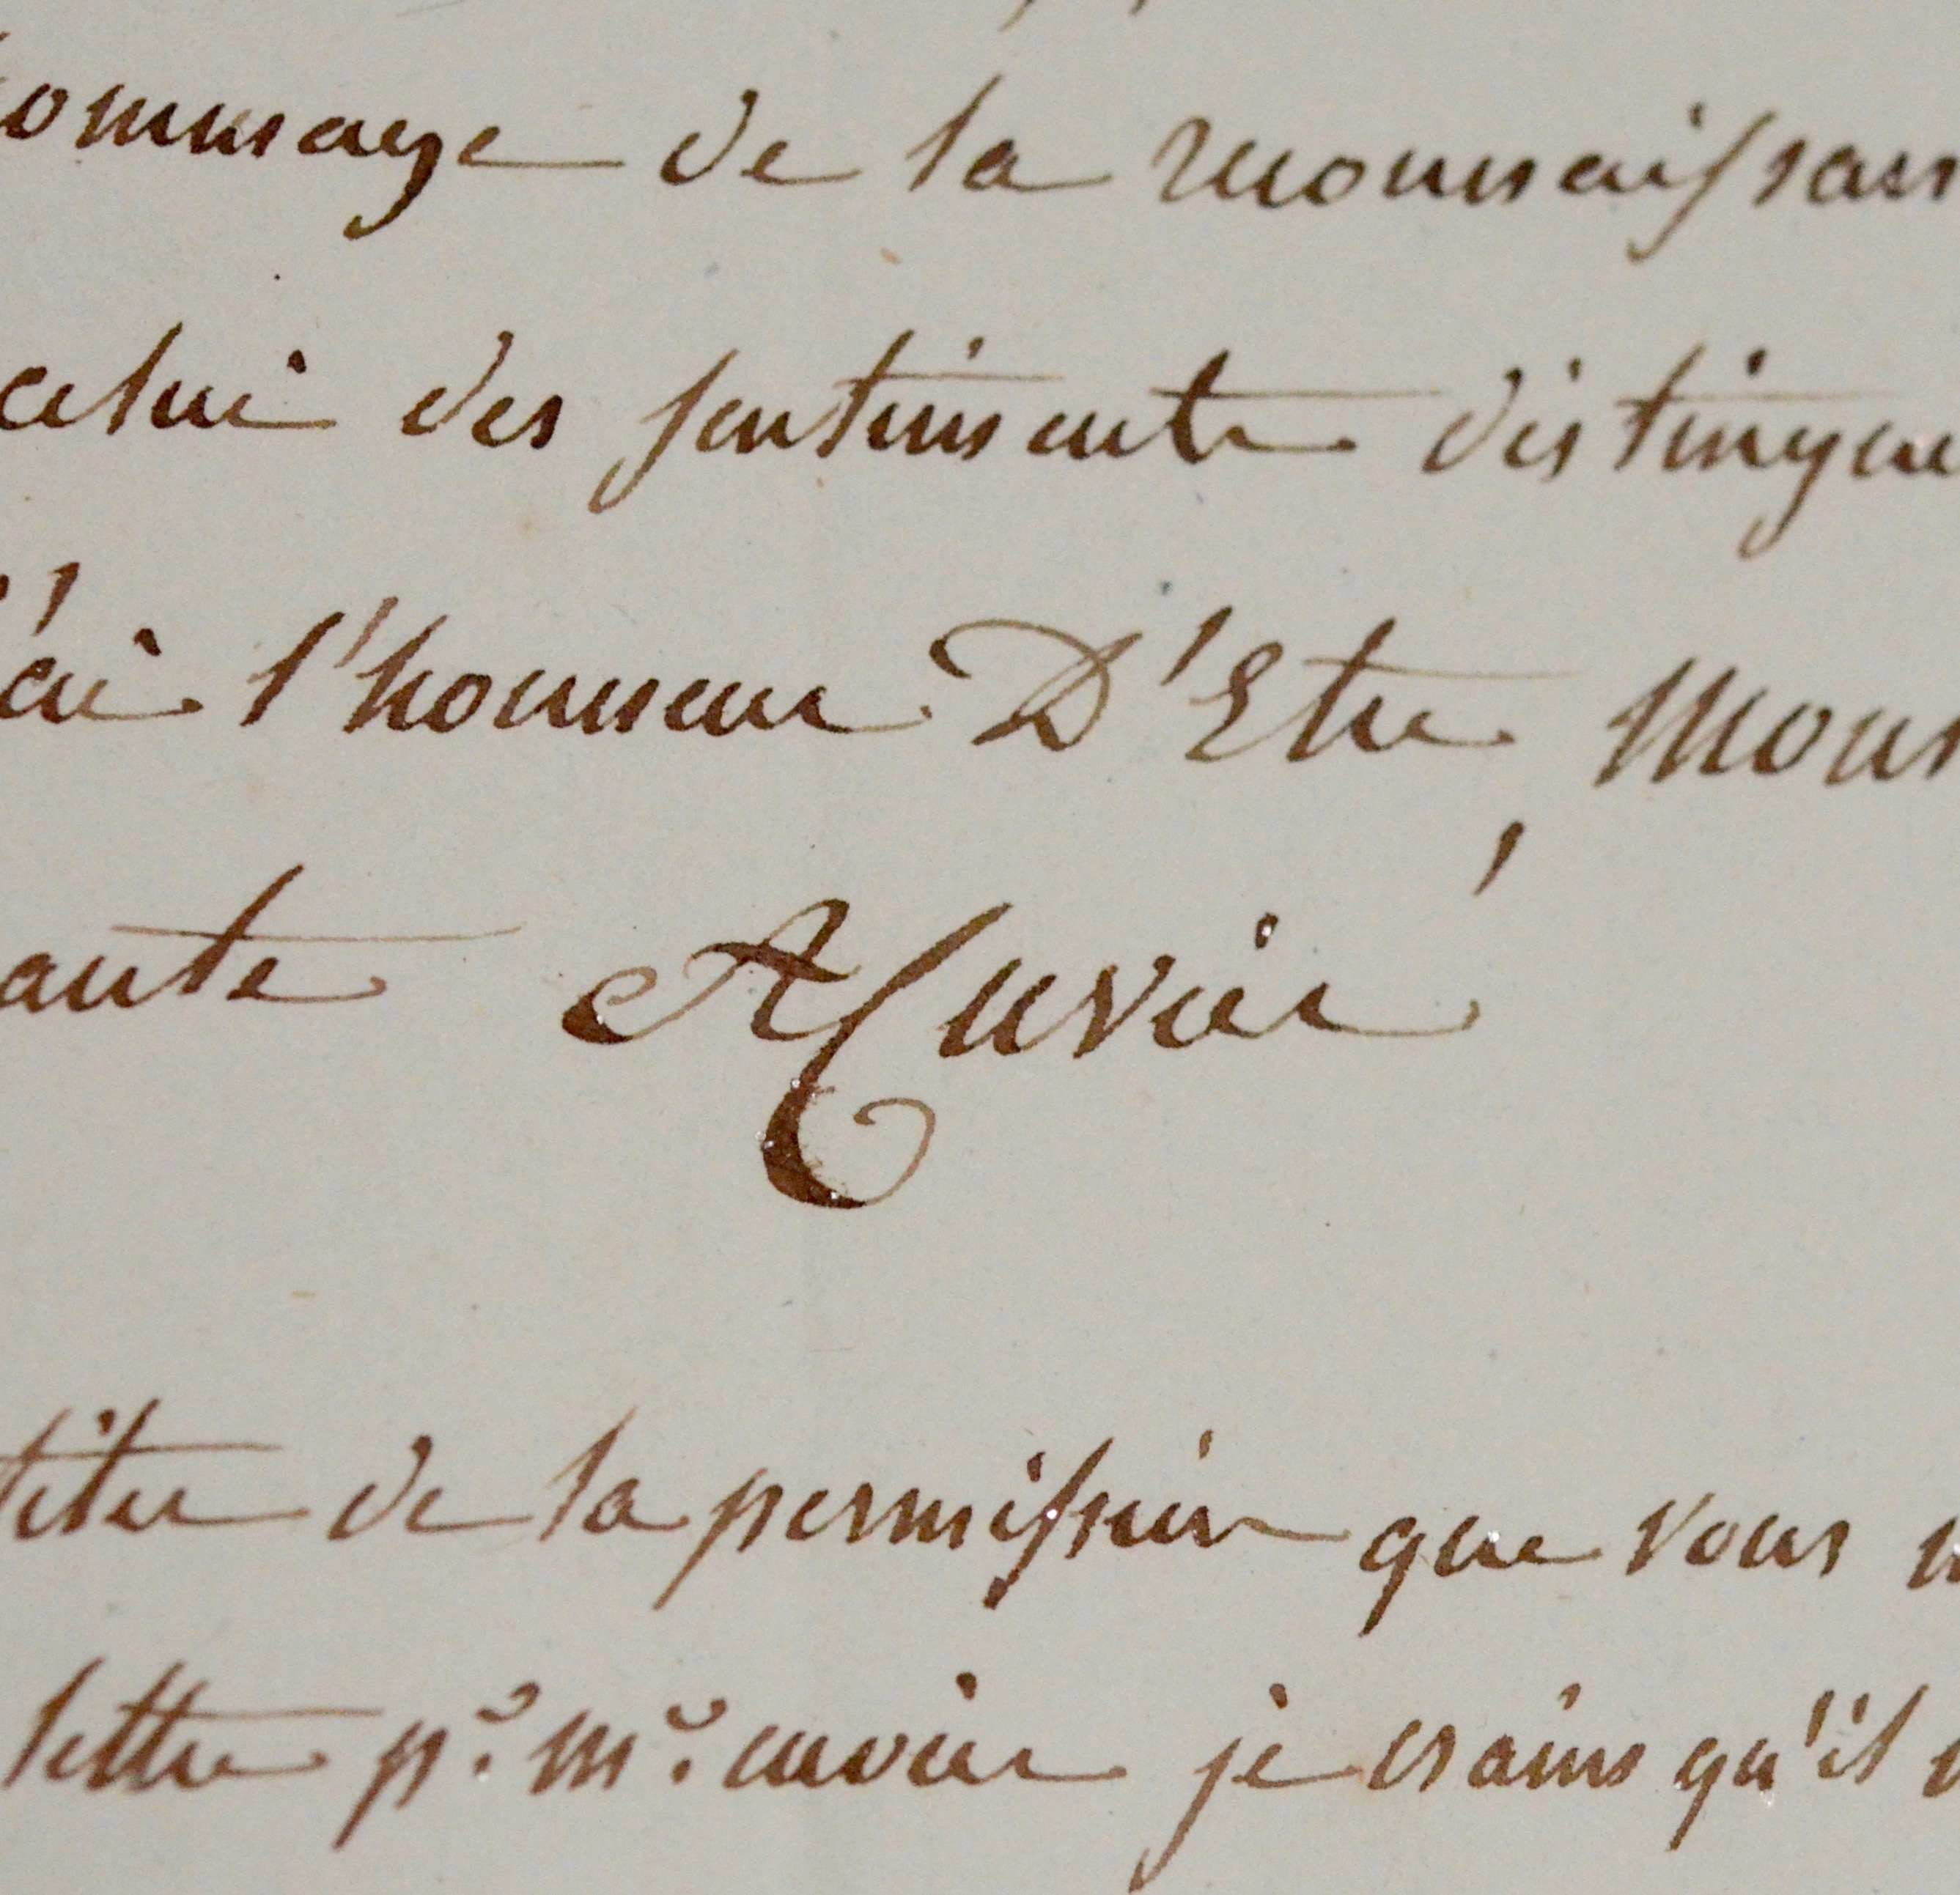 hommage de la reconnaissan
celui des sentiments distingue
j'ai l'honneur D'Etre, Mons
ante ACuvier
titer de la permission que vous
lettre pr. mr. cuvier je crains qu'il